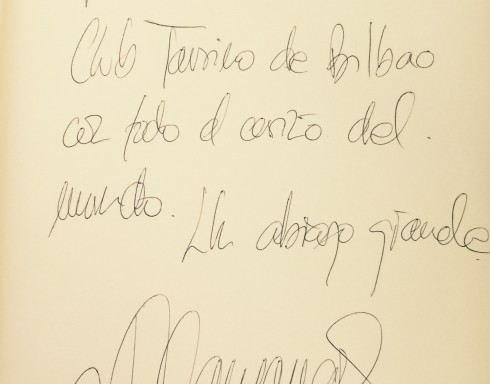 Club Taurino de Bilbao
con todo el cariño del
mundo.
Un abrazo grande